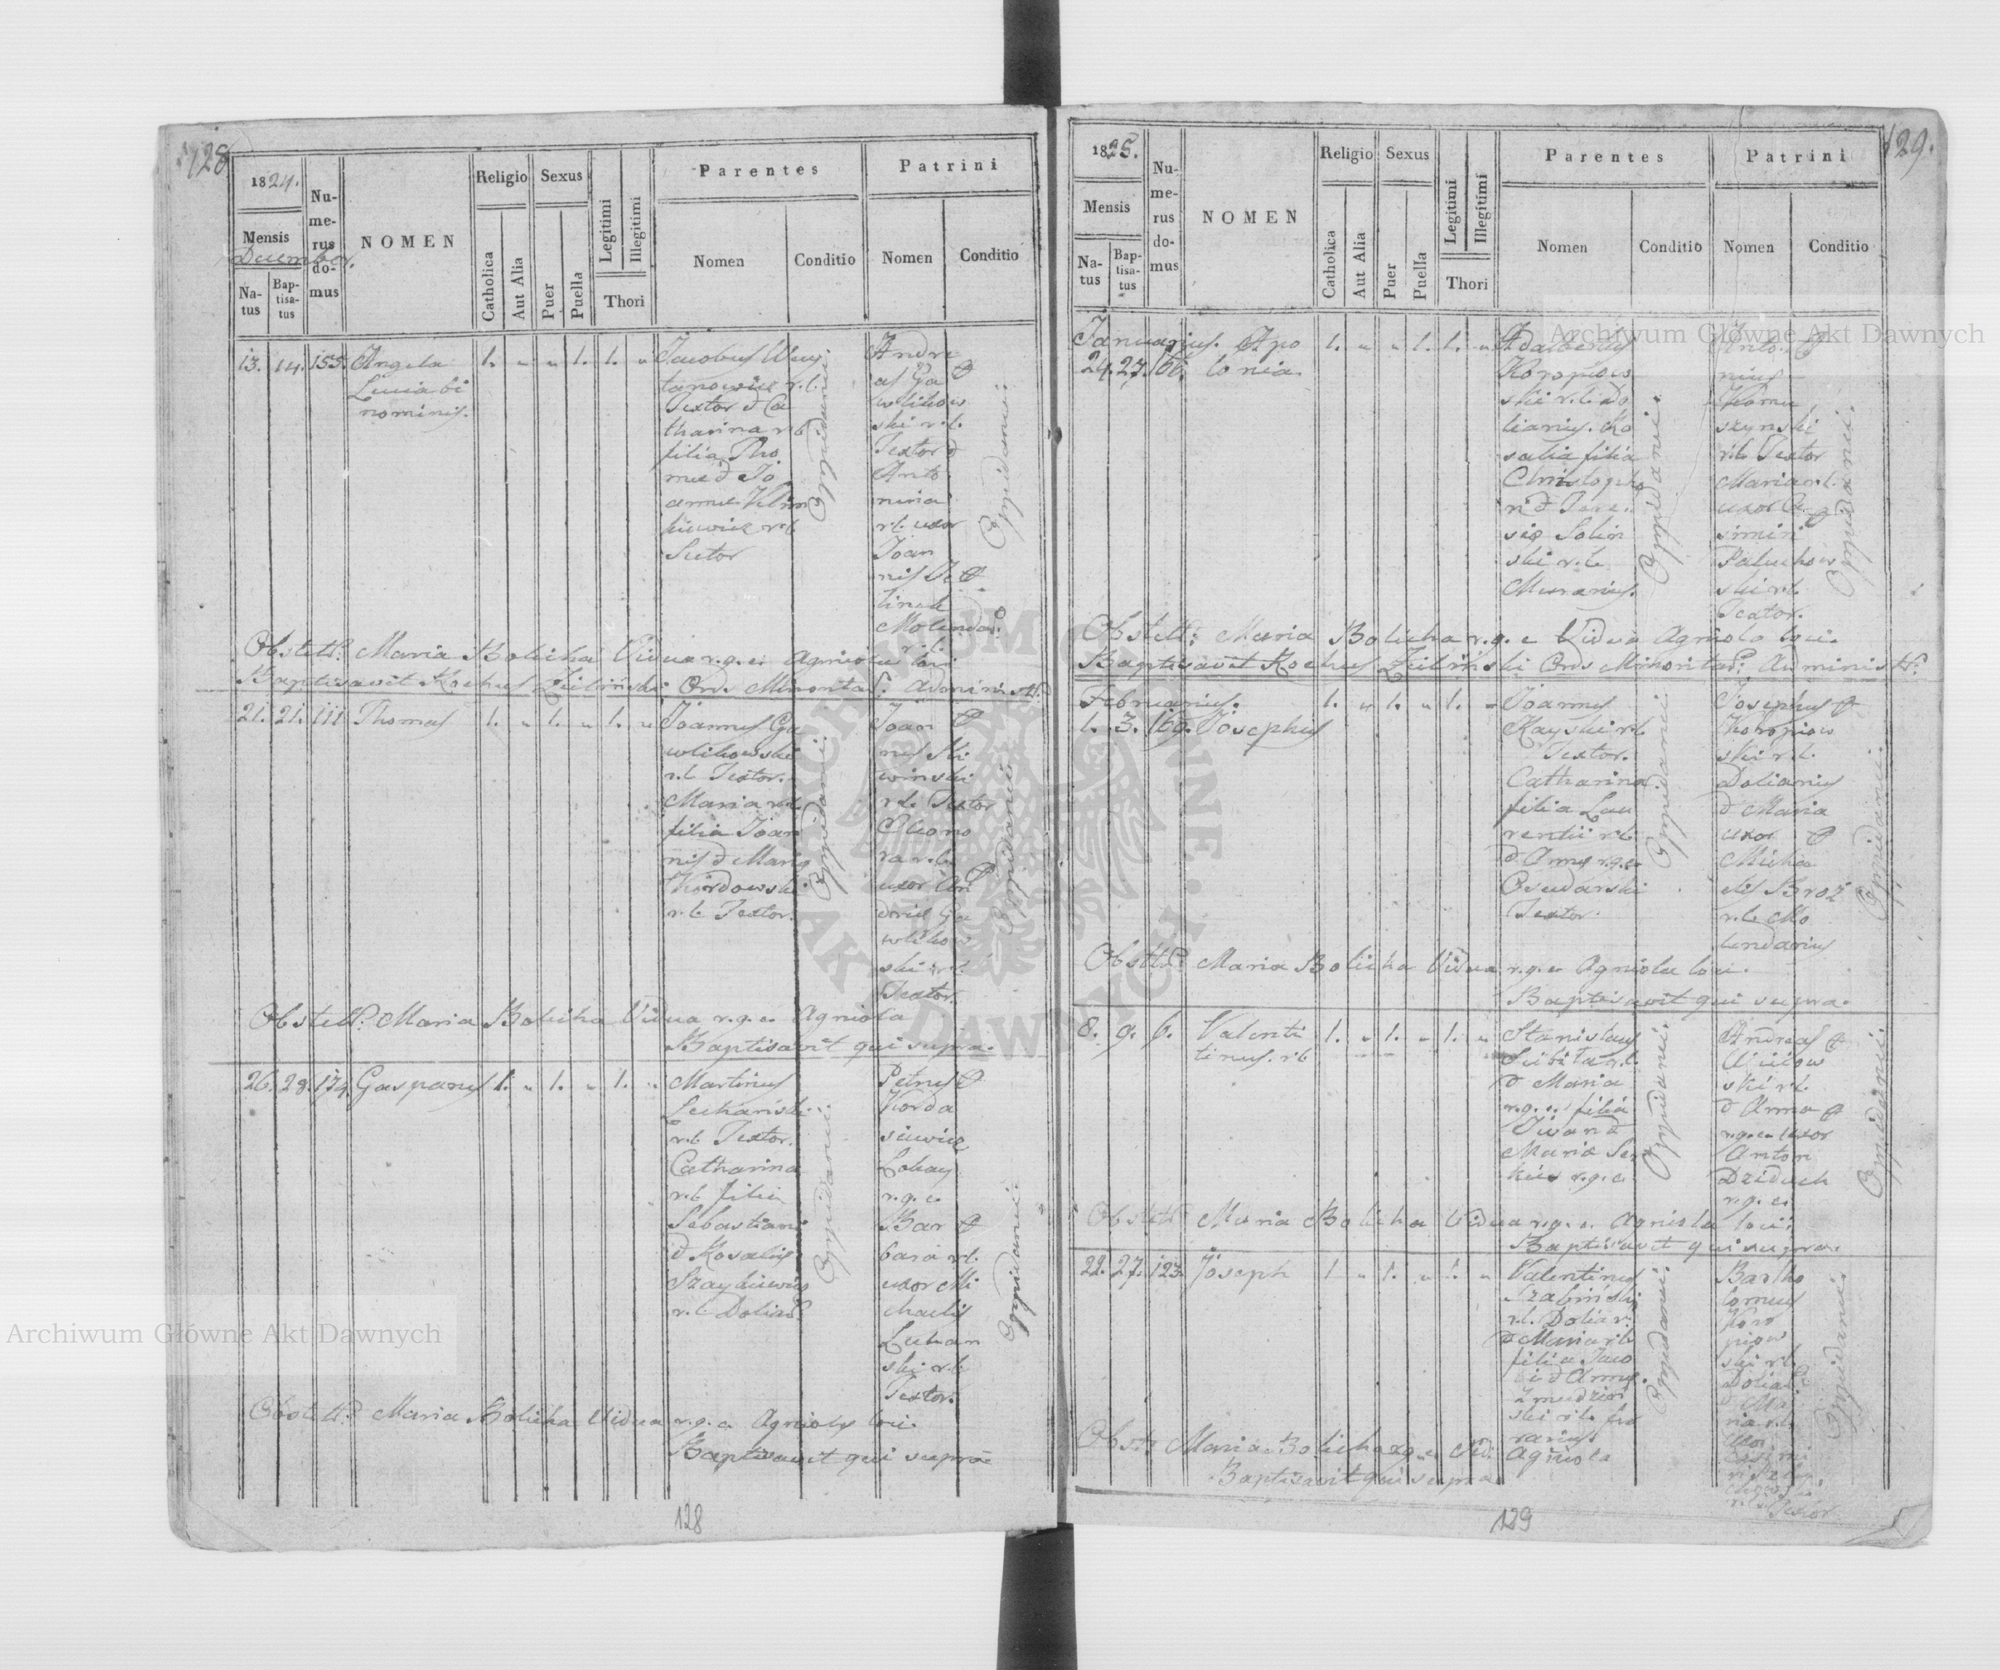 128
1824.
Mensis
December.
Natus
Baptisatus
Numerus domus
NOMEN
Religio
Catholica
Aut Alia
Sexus
Puer
Puella
Legitimi
Illegitimi
Thori
Parentes
Nomen
Conditio
Patrini
Nomen
Conditio
13. 14. 155. Angela
Lucia bi
nominis.
1. " " 1. 1. "
Jacobus
r.l.
Textor & Ca
tharina r.l.
filia Tho
mae & Jo
annae
r.l.
Sutor
Oppidani
Andre
as Ga
wlikow
ski r.l.
Textor &
Anto
nina
r.l. uxor
Joan
nis
Molendar.
r.l.
Oppidani
Obstetr. Maria Bolicha Vidua r.g.c. Agricola loci
Baptisavit Rochus Zieliński Ord. Minorita. Administr.
21. 21. 111 Thomas
1. " 1. " 1. "
Joannes Ga
wlikowski
r.l. Textor.
Maria r.l.
filia Joan
nis & Maria
Kordowski
r.l. Textor.
Oppidani
Joan
nes Sli
winski
r.l. Textor
Eleono
ra r.l.
uxor An
dreae Ga
wlikow
ski r.l.
Textor.
Oppidani
Obstetr. Maria Bolicha Vidua r.g.c. Agricola
Baptisavit qui supra.
26. 28. 174. Gasparus
1. " 1. " 1. "
Martinus
Lechański
r.l. Textor.
Catharina
r.l. filia
Sebastiani
& Rosaliae
Szaykiewicz
r.l. Doliar.
Oppidani
Petrus
Korda
siewicz
r.g.c.
Bar
bara r.l.
uxor Mi
chaelis
Lechan
ski r.l.
Textor.
Oppidani
Obstetr. Maria Bolicha Vidua r.g.c. Agricola loci.
Baptisavit qui supra
128
129.
1825.
Mensis
Natus
Baptisatus
Numerus domus
NOMEN
Religio
Catholica
Aut Alia
Sexus
Puer
Puella
Legitimi
Illegitimi
Thori
Parentes
Nomen
Conditio
Patrini
Nomen
Conditio
Januarius. Apo
24. 27. 166. lonia.
1. " " 1. 1. "
Adalbertus
Koropiow
ski r.l. Do
liarius. Ro
salia filia
Christopho
ri & Tere
siae Solin
ski r.l.
Murarius.
Oppidani.
Anto
nius
Komu
szynski
r.l. Textor
Maria r.l.
uxor Ca
simiri
Paluchow
ski r.l.
Textor.
Oppidanei.
Obstetr: Maria Bolicha r.g.c. Vidua Agricola loci.
Baptisavit Rochus Zieliński Ord. Minorita. Administr.
Februarius.
1. 3. 169. Josephus
1. " 1. " 1. "
Joannes
Kayski r.l.
Textor.
Catharina
filia Lau
rentii r.l.
& Annae r.g.c.
Textor.
Oppidanii
Josephus
Koropiow
ski r.l.
Doliarius
& Maria
uxor
Micha
elis Broż
r.l. Mo
lendarius
Oppidanii.
Obstetr. Maria Bolicha Vidua r.g.c. Agricola loci.
Baptisavit qui supra.
8. 9. 6. Valenti
tinus. r.l.
1. " 1. " 1. "
Stanislaus
r.l.
& Maria
r.g.c. filia
Iwan &
Maria
r.g.c.
Oppidanii
Andreas
ski r.l.
& Anna
r.g.c. uxor
Anton
Dziduch
r.g.c.
Oppidanii
Obstetr. Maria Bolicha Vidua r.g.c. Agricola loci.
Baptisavit qui supra.
22. 27. 123. Joseph
1 " 1. " 1. "
Valentinus
r.l. Doliar.
& Maria r.l.
filia Jaco
bi & Annae
ski r.l.
Oppidanii
Bartho
lomeus
Koro
piow
ski r.l.
Doliar.
& Ma
ria r.l.
uxor
Casimi
ri
r.l. Textor
Oppidanii
Obstr Maria Bolicha r.g.c. Vid. Agricola
Baptisavit qui supra
129
Archiwum Główne Akt Dawnych
Archiwum Główne Akt Dawnych
ARCHIWUM GŁÓWNE AKT DAWNYCH